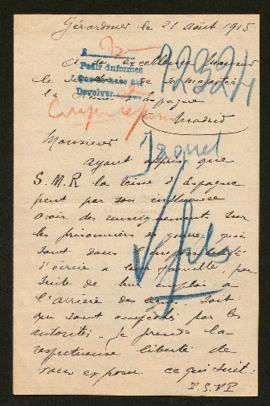 Gérardmer le 21 août 1915
A
Pedir informes
Devolver
22324
Son Excellence Monsieur
le de Sa Majesté
la Reine d'Espagne
Madrid
Monsieur
Jaquet
ayant appris que
S. M. R la reine d'Espagne
peut par son influence
avoir des renseignements sur
les prisonniers de guerre qui
sont dans l'impossibilité
d'écrire a leur famille, par
suite de leur emploi a
l'arrière des soit
qui sont empêchés par les
autorités - je prends la
respectueuse liberté de
vous exposer ce qui suit:
T.S.V.P.